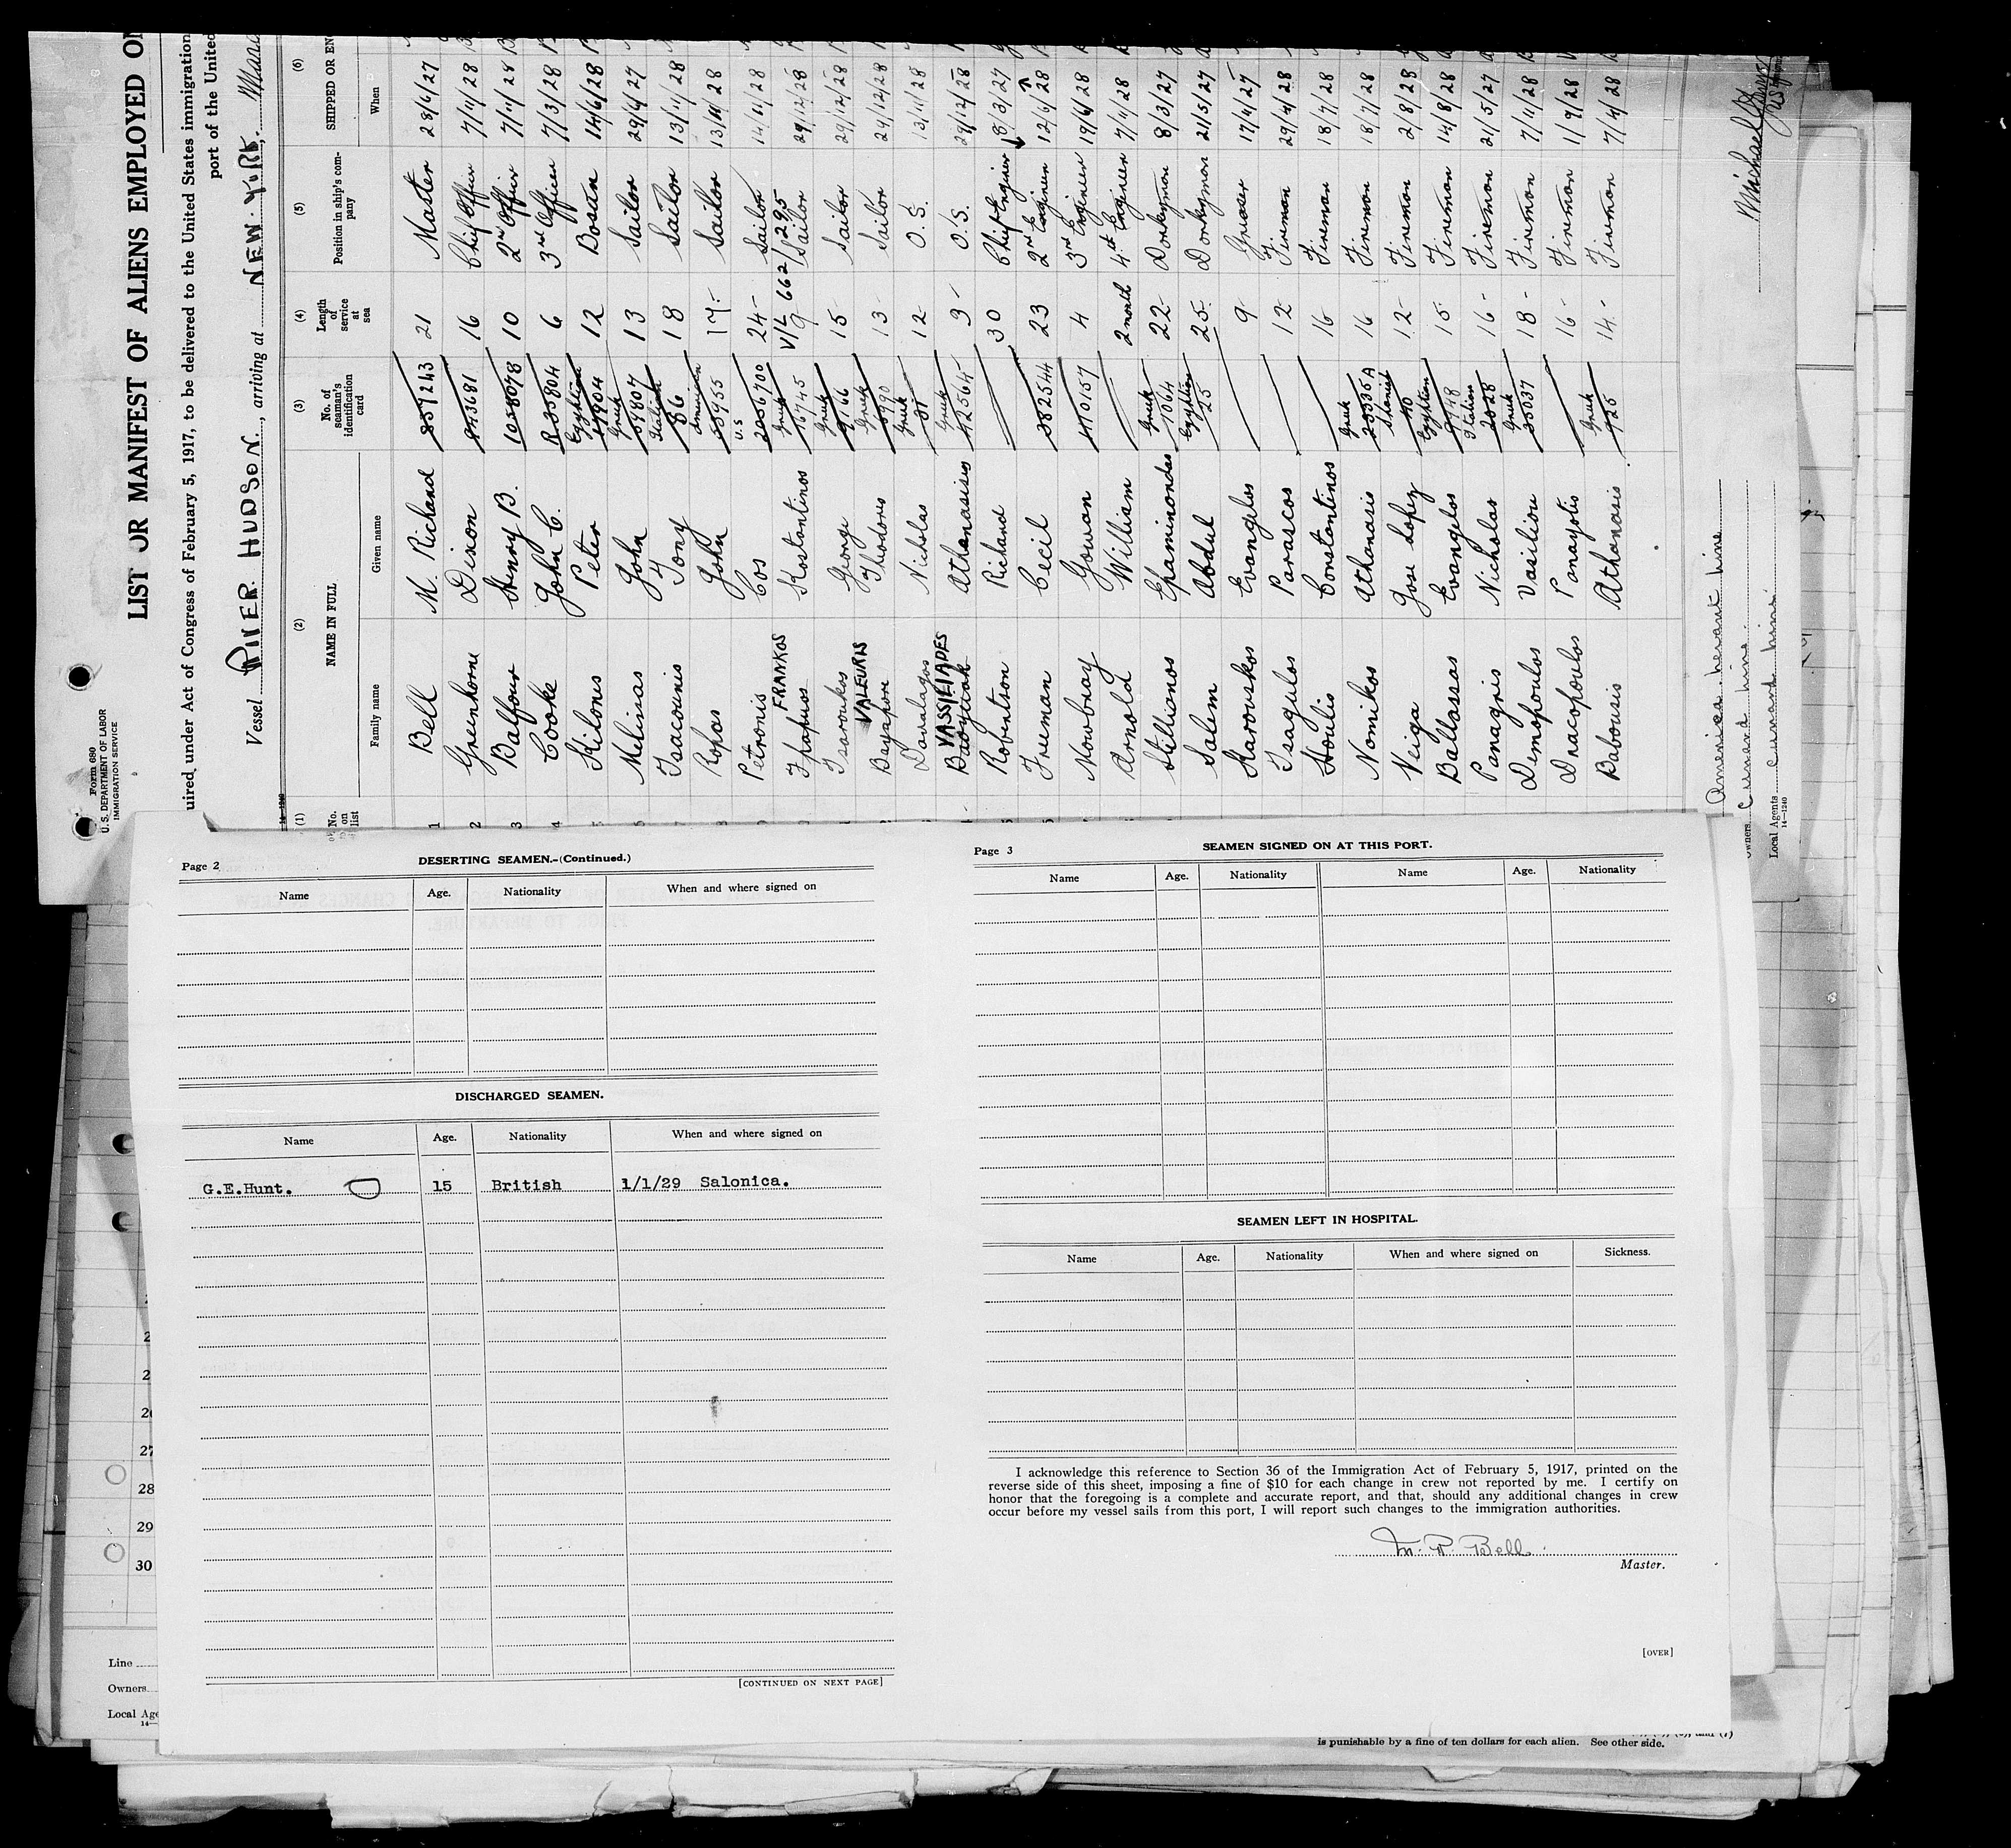 Form 680
U. S. DEPARTMENT OF LABOR
IMMIGRATION SERVICE
LIST OR MANIFEST OF ALIENS EMPLOYED ON
uired under Act of Congress of February 5, 1917, to be delivered to the United States immigration
port of the United
Vessel RIVER HUDSON, arriving at NEW YORK,
(1) (2) (3) (4) (5) (6)
No. on list NAME IN FULL No. of seaman's identification card Length of service at sea Position in ship's company SHIPPED OR EN
Family name Given name When
1 Bell M. Richard 859243 21 Master 28/6/27
2 Greenhorne Dixon 843681 16 Chief Officer 7/11/28
3 Balfour Henry B. 1058078 10 2nd Officer 7/11/28
4 Cooke John C. R 35804 6 3rd Officer 7/3/28
5 Kilonis Peter Egyptian 12 Bosun 14/6/28
Melissas John Greek 59807 13 Sailor 29/6/27
Tsacounis Tony Italian 86 18 Sailor 13/11/28
Ropas John 55955 17 Sailor 13/11/28
Petronis Cos U.S 2056700 24 Sailor 14/11/28
FRANKOS V/L 662/295
Kostantinos Greek 15745 9 Sailor 29/12/28
Tsaroukos George Greek 9166 15 Sailor 29/12/28
VALEURIS
Thodoris Greek 13 Sailor 29/12/28
Nicholas Greek 12 O.S. 13/11/28
VASSILIADES
Athanasisis Greek 42564 9 O.S. 29/12/28
Robertson Richard 30 Chief Engineer 18/3/27
Freeman Cecil 382544 23 2nd Engineer 12/6/28
Mowbray Gowan 410157 4 3rd Engineer 19/6/28
Arnold William 2 month 4th Engineer 7/11/28
Stillianos Epaminondas Greek 7064 22 Donkeyman 8/3/27
Salem Abdul Egyptian 25 25 Donkeyman 21/5/27
Karouskos Evangelos 9 Greaser 17/4/27
Tsagulos Parascos 12 Fireman 29/4/28
Houlis Constantinos 16 Fireman 18/7/28
Nomikos Athanasis Greek 23535A 16 Fireman 18/7/28
Veiga Jose Lopez Spanish 40 12 Fireman 2/8/28
Ballassas Evangelos Egyptian 9948 15 Fireman 14/8/28
Panagris Nicholas Italian 2028 16 Fireman 21/5/27
Dimopoulos Vasiliou Greek 35037 18 Fireman 7/11/28
Dracopoulos Panayotis 16 Fireman 1/9/28
Babousis Athanasis Greek 925 14 Fireman 7/4/28
America Levant Line
Owners Cunard Line
Local Agents Cunard Line
14—1240
Page 2
DESERTING SEAMEN.-(Continued.)
Name Age. Nationality When and where signed on
DISCHARGED SEAMEN.
Name Age. Nationality When and where signed on
G.E.Hunt. 15 British 1/1/29 Salonica.
[CONTINUED ON NEXT PAGE]
Page 3
SEAMEN SIGNED ON AT THIS PORT.
Name Age. Nationality Name Age. Nationality
SEAMEN LEFT IN HOSPITAL.
Name Age. Nationality When and where signed on Sickness.
I acknowledge this reference to Section 36 of the Immigration Act of February 5, 1917, printed on the
reverse side of this sheet, imposing a fine of $10 for each change in crew not reported by me. I certify on
honor that the foregoing is a complete and accurate report, and that, should any additional changes in crew
occur before my vessel sails from this port, I will report such changes to the immigration authorities.
M. R. Bell
Master.
[OVER]
27
28
29
30
Line
Owners
Local Age
is punishable by a fine of ten dollars for each alien. See other side.